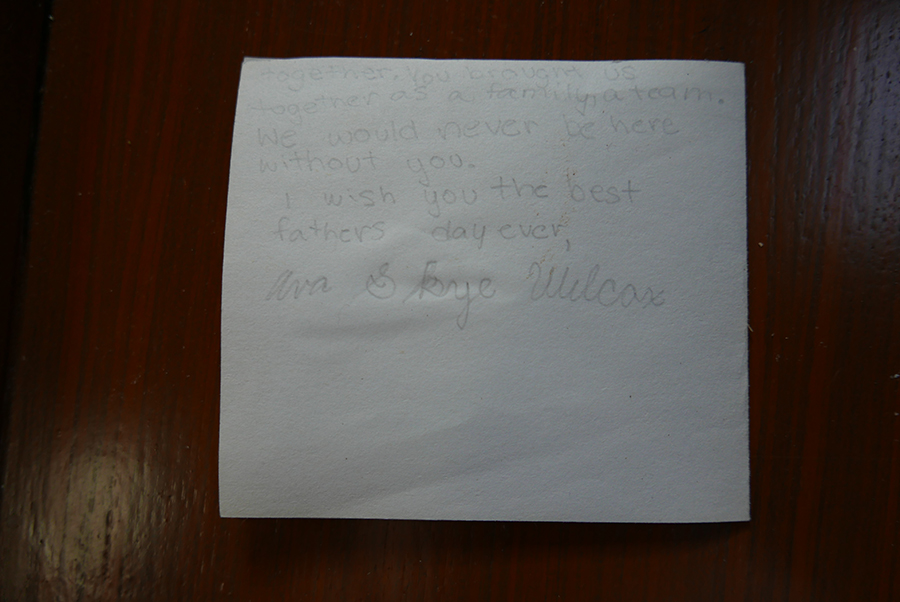 together. You brought us
together as a family, a team.
We would never be here
without you.
I wish you the best
fathers day ever,
Ava Skye Wilcox